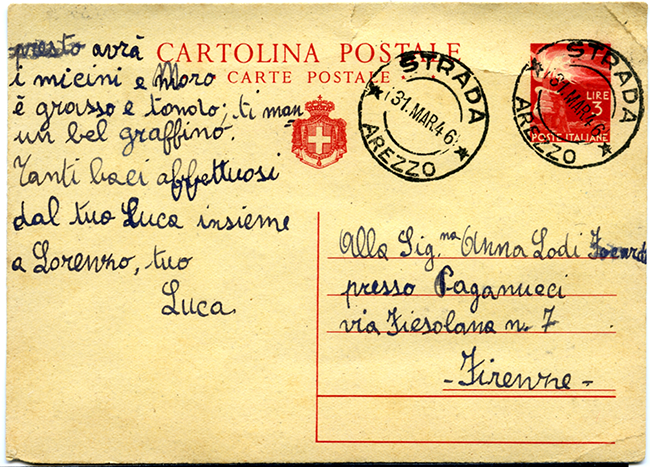 presto avrà
i micini e Moro
è grasso e tondo; ti man
un bel graffino.
Tanti baci affettuosi
dal tuo Luca insieme
a Lorenzo, tuo
Luca.
CARTOLINA POSTALE
CARTE POSTALE
STRADA
31.MAR.46
AREZZO
STRADA
31.MAR.46
AREZZO
LIRE
3
POSTE ITALIANE
Alla Sig.na Anna Lodi
presso Paganucci
via Fiesolana n. 7
- Firenze -